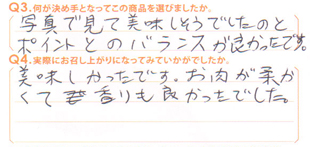 Q3.何が決め手となってこの商品を選びましたか。
写真で見て美味しそうでしたのと
ポイントとのバランスが良かったです。
Q4.実際にお召し上がりになってみていかがでしたか。
美味しかったです。お肉が柔か
くて 香りも良かったでした。